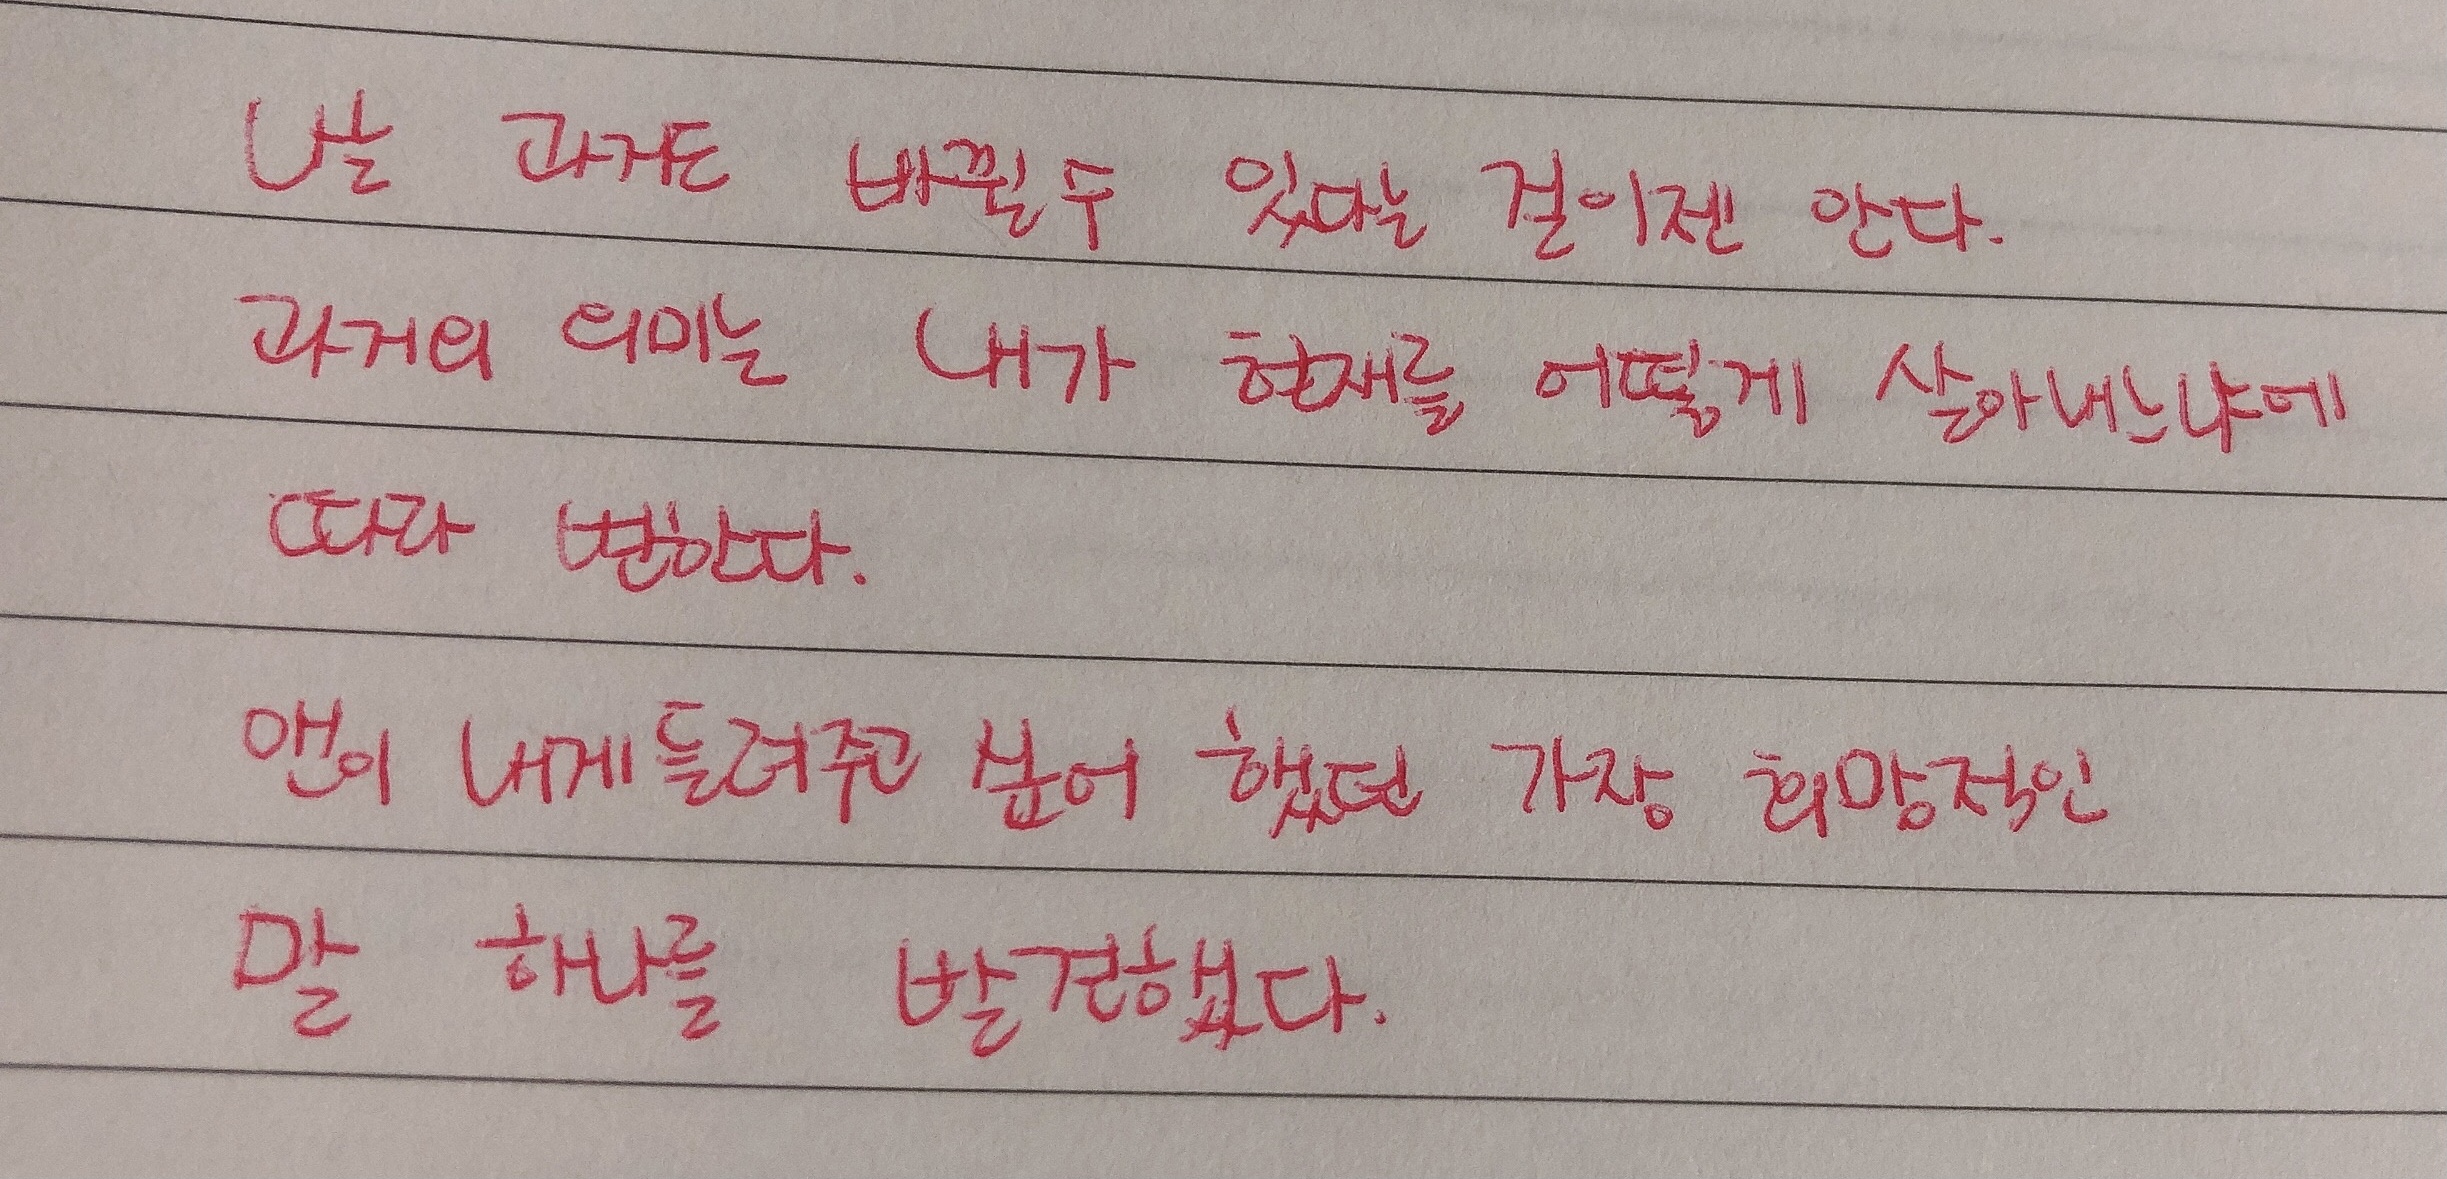 난 과거도 바뀔 수 있다는 걸 이젠 안다.
과거의 의미는 내가 현재를 어떻게 살아내느냐에
따라 변한다.
앤이 내게 들려주고 싶어 했던 가장 희망적인
말 하나를 발견했다.